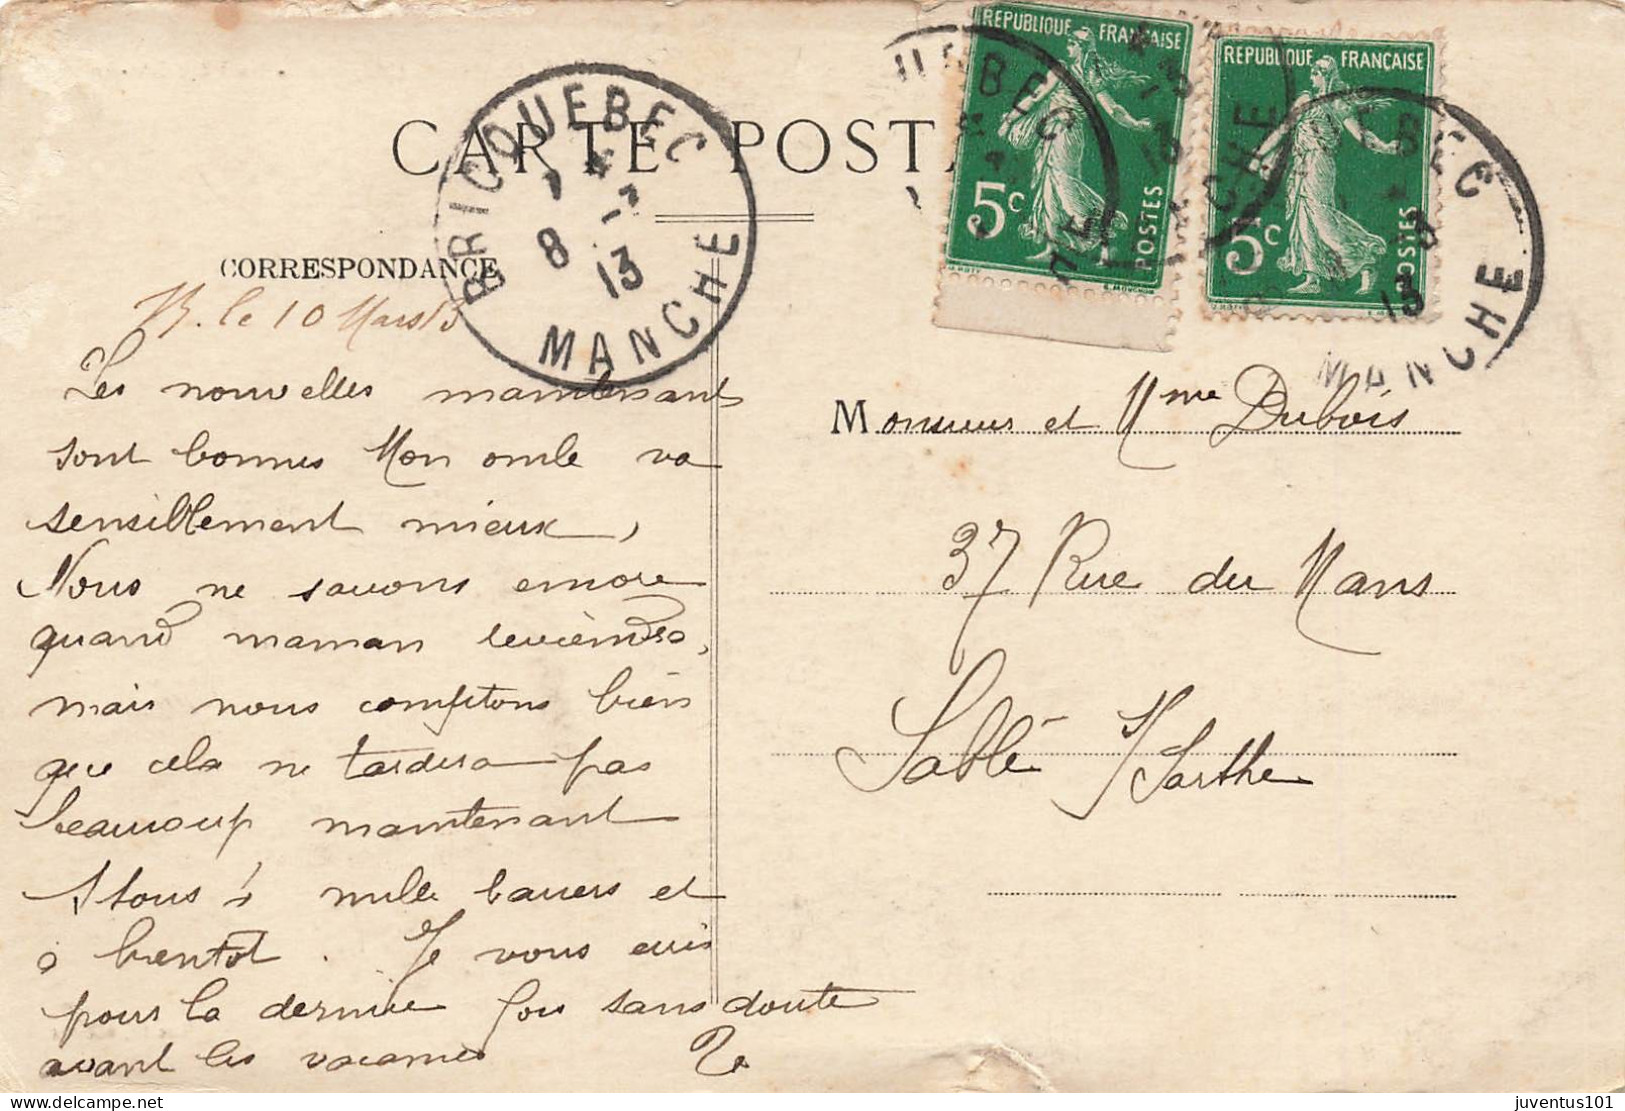 CARTE POSTA
BRICQUEBEC
7
8 13
MANCHE
REPUBLIQUE FRANÇAISE
5c POSTES
REPUBLIQUE FRANÇAISE
5c POSTES
MANCHE
CORRESPONDANCE
B. le 10 Mars 13
Les nouvelles maintenant
sont bonnes Mon oncle va
sensiblement mieux,
Nous ne savons encore
quand maman reviendra,
mais nous comptons bien
que cela ne tardera pas
beaucoup maintenant
A tous 2 mille baisers et
à bientôt. Je vous écris
pour la dernière fois sans doute
avant les vacances
Monsieur et Mme Dubois
37 Rue du Mans
Sablé s/ Sarthe
juventus101